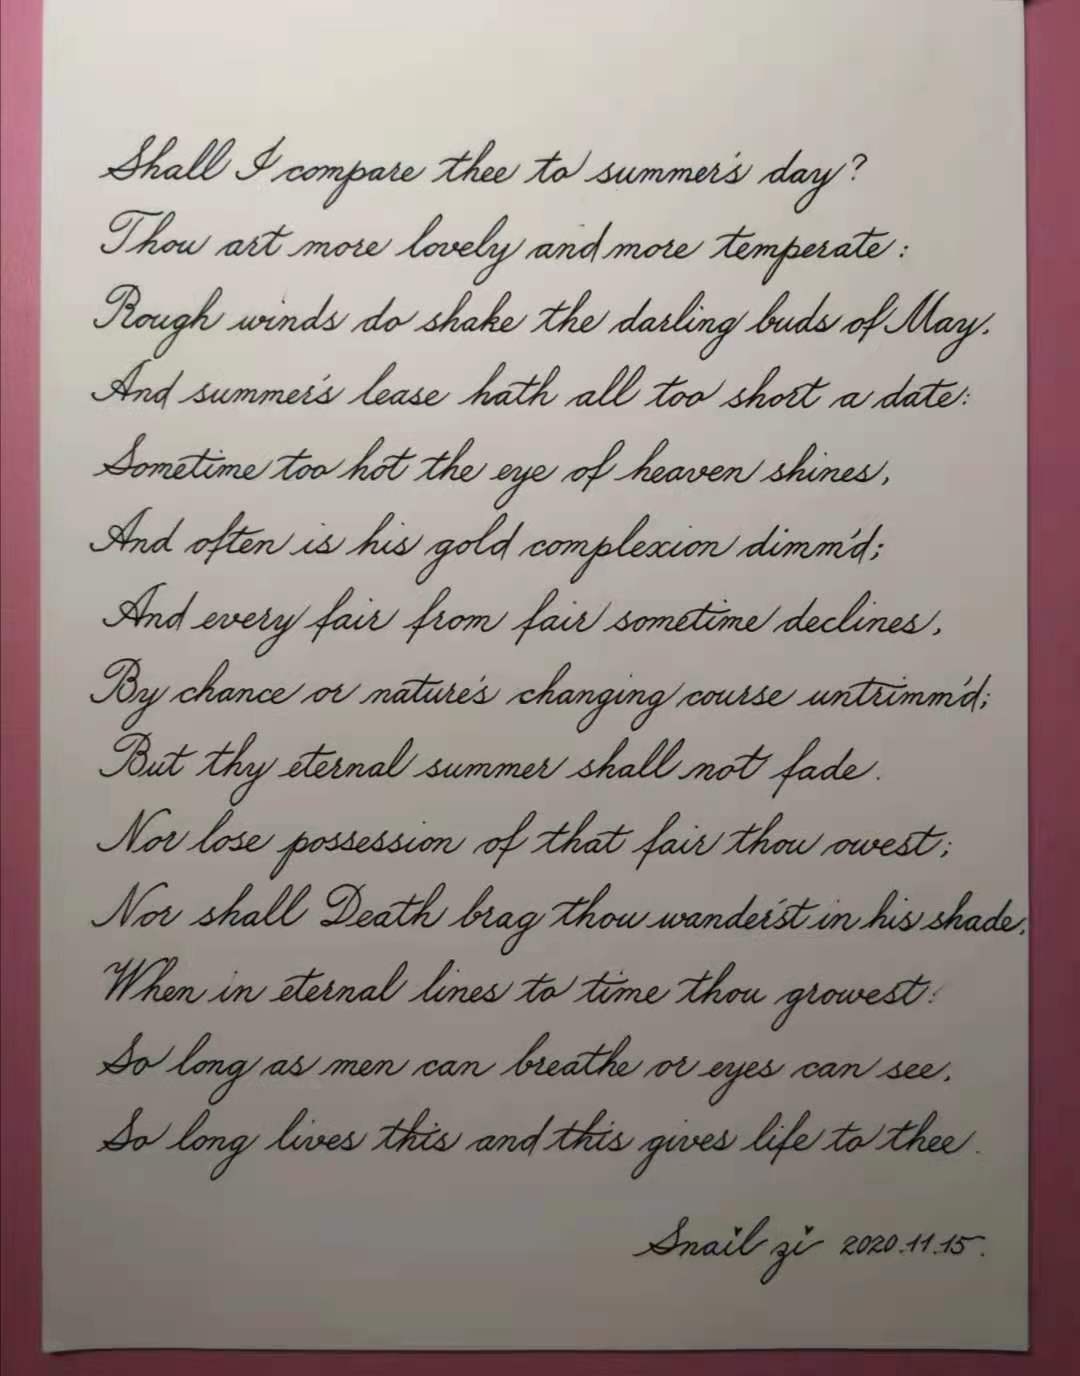 Shall I compare thee to summer's day?
Thou art more lovely and more temperate:
Rough winds do shake the darling buds of May.
And summer's lease hath all too short a date:
Sometime too hot the eye of heaven shines,
And often is his gold complexion dimm'd;
And every fair from fair sometime declines,
By chance or nature's changing course untrimm'd;
But thy eternal summer shall not fade.
Nor lose possession of that fair thou owest;
Nor shall Death brag thou wander'st in his shade,
When in eternal lines to time thou growest:
So long as men can breathe or eyes can see,
So long lives this and this gives life to thee.
Snail zi 2020.11.15.